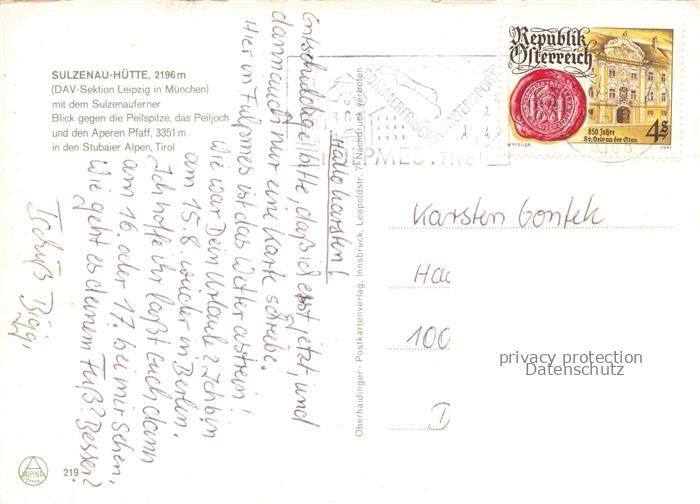 SULZENAU-HÜTTE, 2196 m
(DAV-Sektion Leipzig in München)
mit dem Sulzenauferner
Blick gegen die Peilspitze, das Peiljoch
und den Aperen Pfaff, 3351 m
in den Stubaier Alpen, Tirol
Hallo Karsten!
Entschuldige bitte, daß ich erst jetzt, und
dann auch nur eine Karte schreibe.
Hier in Fulpmes ist das Wetter astrein!
Wie war Dein Urlaub? Ich bin
am 15.8. wieder in Berlin.
Ich hoffe ihr laßt euch dann
am 16. oder 17. bei mir sehen.
Wie geht es deinem Fuß? Besser?
Tschüß
ALPINA
Druck
219
Oberhaidinger - Postkartenverlag, Innsbruck, Leopoldstr. 7, Nachdruck verboten
SOMMERFRISCHE WINTERSPORT
FULPMES Tirol
Republik
Österreich
850 Jahre
St. Veit an der Glan
4 S
W. PFEILER
1981
Karsten
Ha
100
privacy protection
Datenschutz